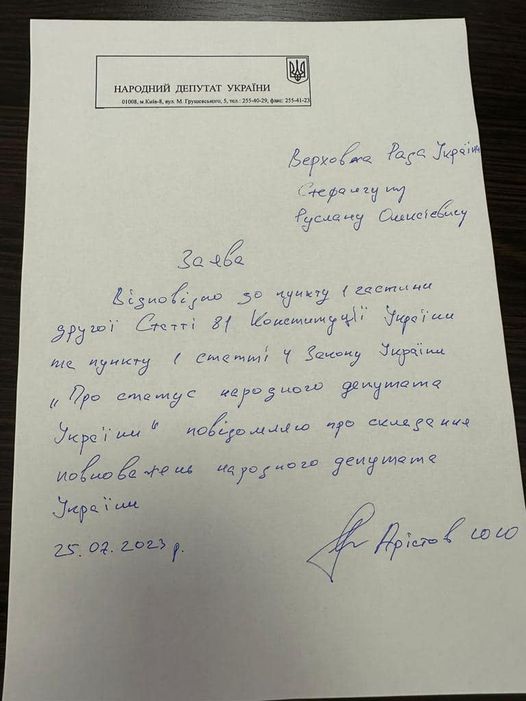 НАРОДНИЙ ДЕПУТАТ УКРАЇНИ
01008, м.Київ-8, вул. М. Грушевського, 5, тел.: 255-40-29, факс: 255-41-23
Верховна Рада України
Стефанчуку
Руслану Олексієвичу
Заява
Відповідно до пункту 1 частини
другої Статті 81 Конституції України
та пункту 1 статті 4 Закону України
„Про статус народного депутата
України" повідомляю про складання
повноважень народного депутата
України
25.07.2023 р. Арістов Ю Ю